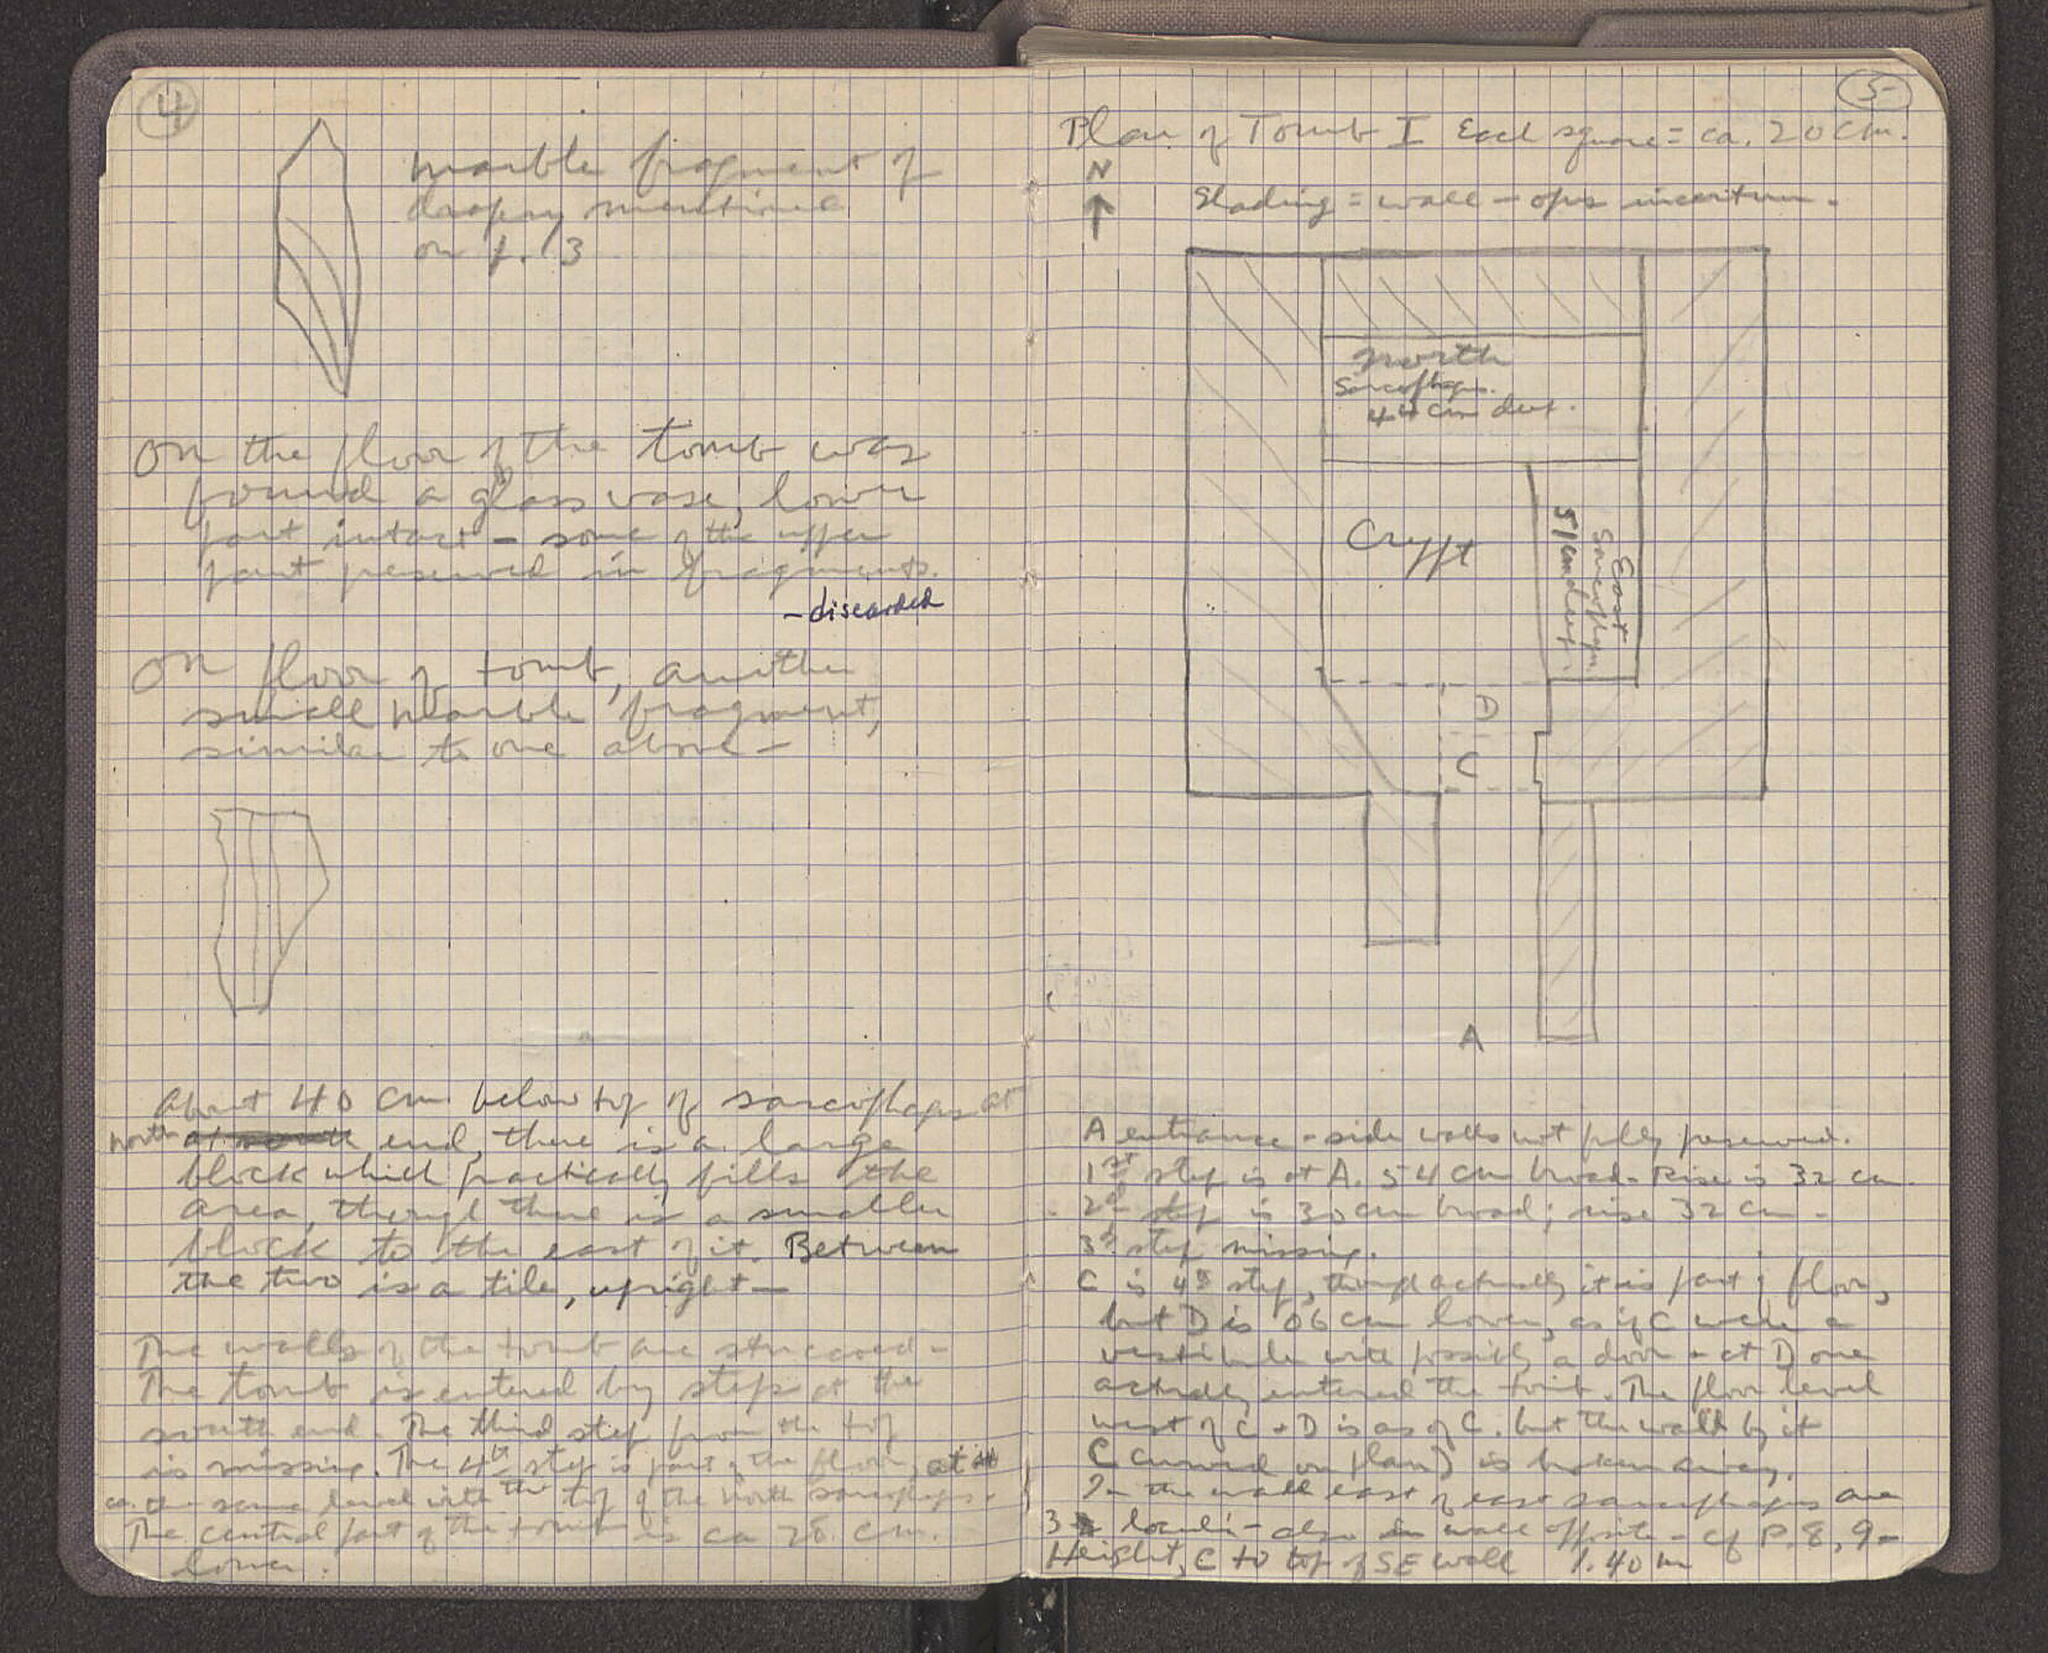 4
marble fragment of
drapery mentioned
on p. 3
On the floor of the tomb was
found a glass vase, lower
part intact - some of the upper
part preserved in fragments.
- discarded
On floor of tomb, another
small marble fragment,
similar to one above -
About 40 cm below top of sarcophagus at
north end, there is a large
block which practically fills the
area, though there is a smaller
block to the east of it. Between
the two is a tile, upright -
The walls of the tomb are stuccoed -
The tomb is entered by steps at the
south end. The third step from the top
is missing. The 4th step is part of the floor, at
ca. the same level with the top of the north sarcophagus.
The central part of the tomb is ca 25 cm.
lower.
5
Plan of Tomb I Each square = ca. 20 cm.
N
Shading = wall - opus incertum.
North
Sarcophagus.
44 cm deep.
Crypt
East
Sarcophagus.
51 cm deep.
D
C
A
A entrance - side walls not fully preserved.
1st step is at A. 54 cm broad. Rise is 32 cm.
2d step is 30 cm broad; rise 32 cm -
3d step missing.
C is 4th step, though actually it is part of floor,
but D is 06 cm lower, as if C were a
vestibule with possibly a door - at D one
actually entered the tomb. The floor level
west of C + D is as of C. but the wall by it
(curved on plan) is broken away.
In the wall east of east sarcophagus are
3 loculi - also in wall opposite - cf P. 8, 9 -
Height, C to top of SE wall 1.40 m